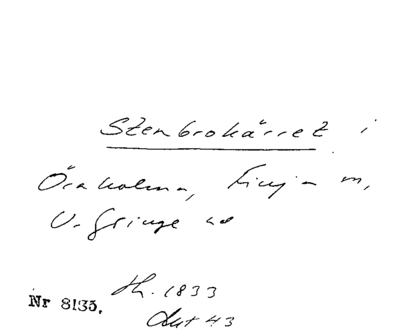 Stenbrokärret i
Öraholma, Finja m,
V. Göinge hd
Nr 8135. Th. 1833
Aut 43